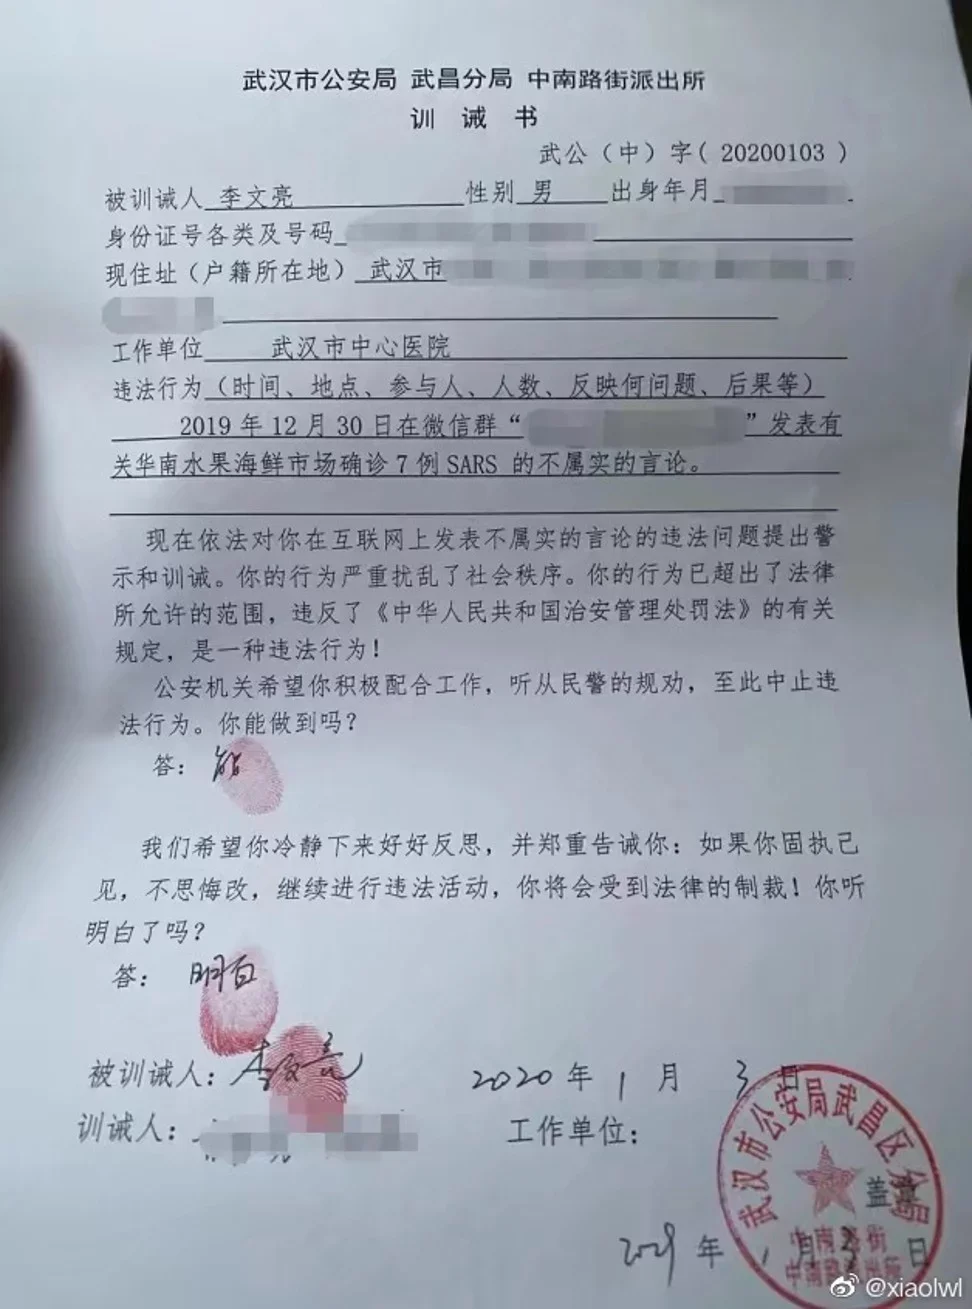 武汉市公安局 武昌分局 中南路街派出所
训 诫 书
武公（中）字( 20200103 )
被训诫人 李文亮 性别 男 出身年月
身份证号各类及号码
现住址（户籍所在地） 武汉市
工作单位 武汉市中心医院
违法行为（时间、地点、参与人、人数、反映何问题、后果等）
2019 年 12 月 30 日在微信群“ ”发表有
关华南水果海鲜市场确诊 7 例 SARS 的不属实的言论。
现在依法对你在互联网上发表不属实的言论的违法问题提出警
示和训诫。你的行为严重扰乱了社会秩序。你的行为已超出了法律
所允许的范围，违反了《中华人民共和国治安管理处罚法》的有关
规定，是一种违法行为！
公安机关希望你积极配合工作，听从民警的规劝，至此中止违
法行为。你能做到吗？
答： 能
我们希望你冷静下来好好反思，并郑重告诫你：如果你固执己
见，不思悔改，继续进行违法活动，你将会受到法律的制裁！你听
明白了吗？
答： 明白
被训诫人：李文亮 2020 年 1 月 3 日
训诫人： 工作单位：
武汉市公安局武昌区分局
盖章
中南路街
中南路街派出所
年 1 月 3 日
@xiaolwl